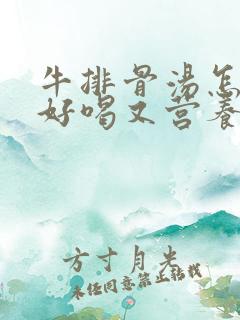 牛排骨汤怎
好喝又营养
方寸月光
未经同意禁止转载